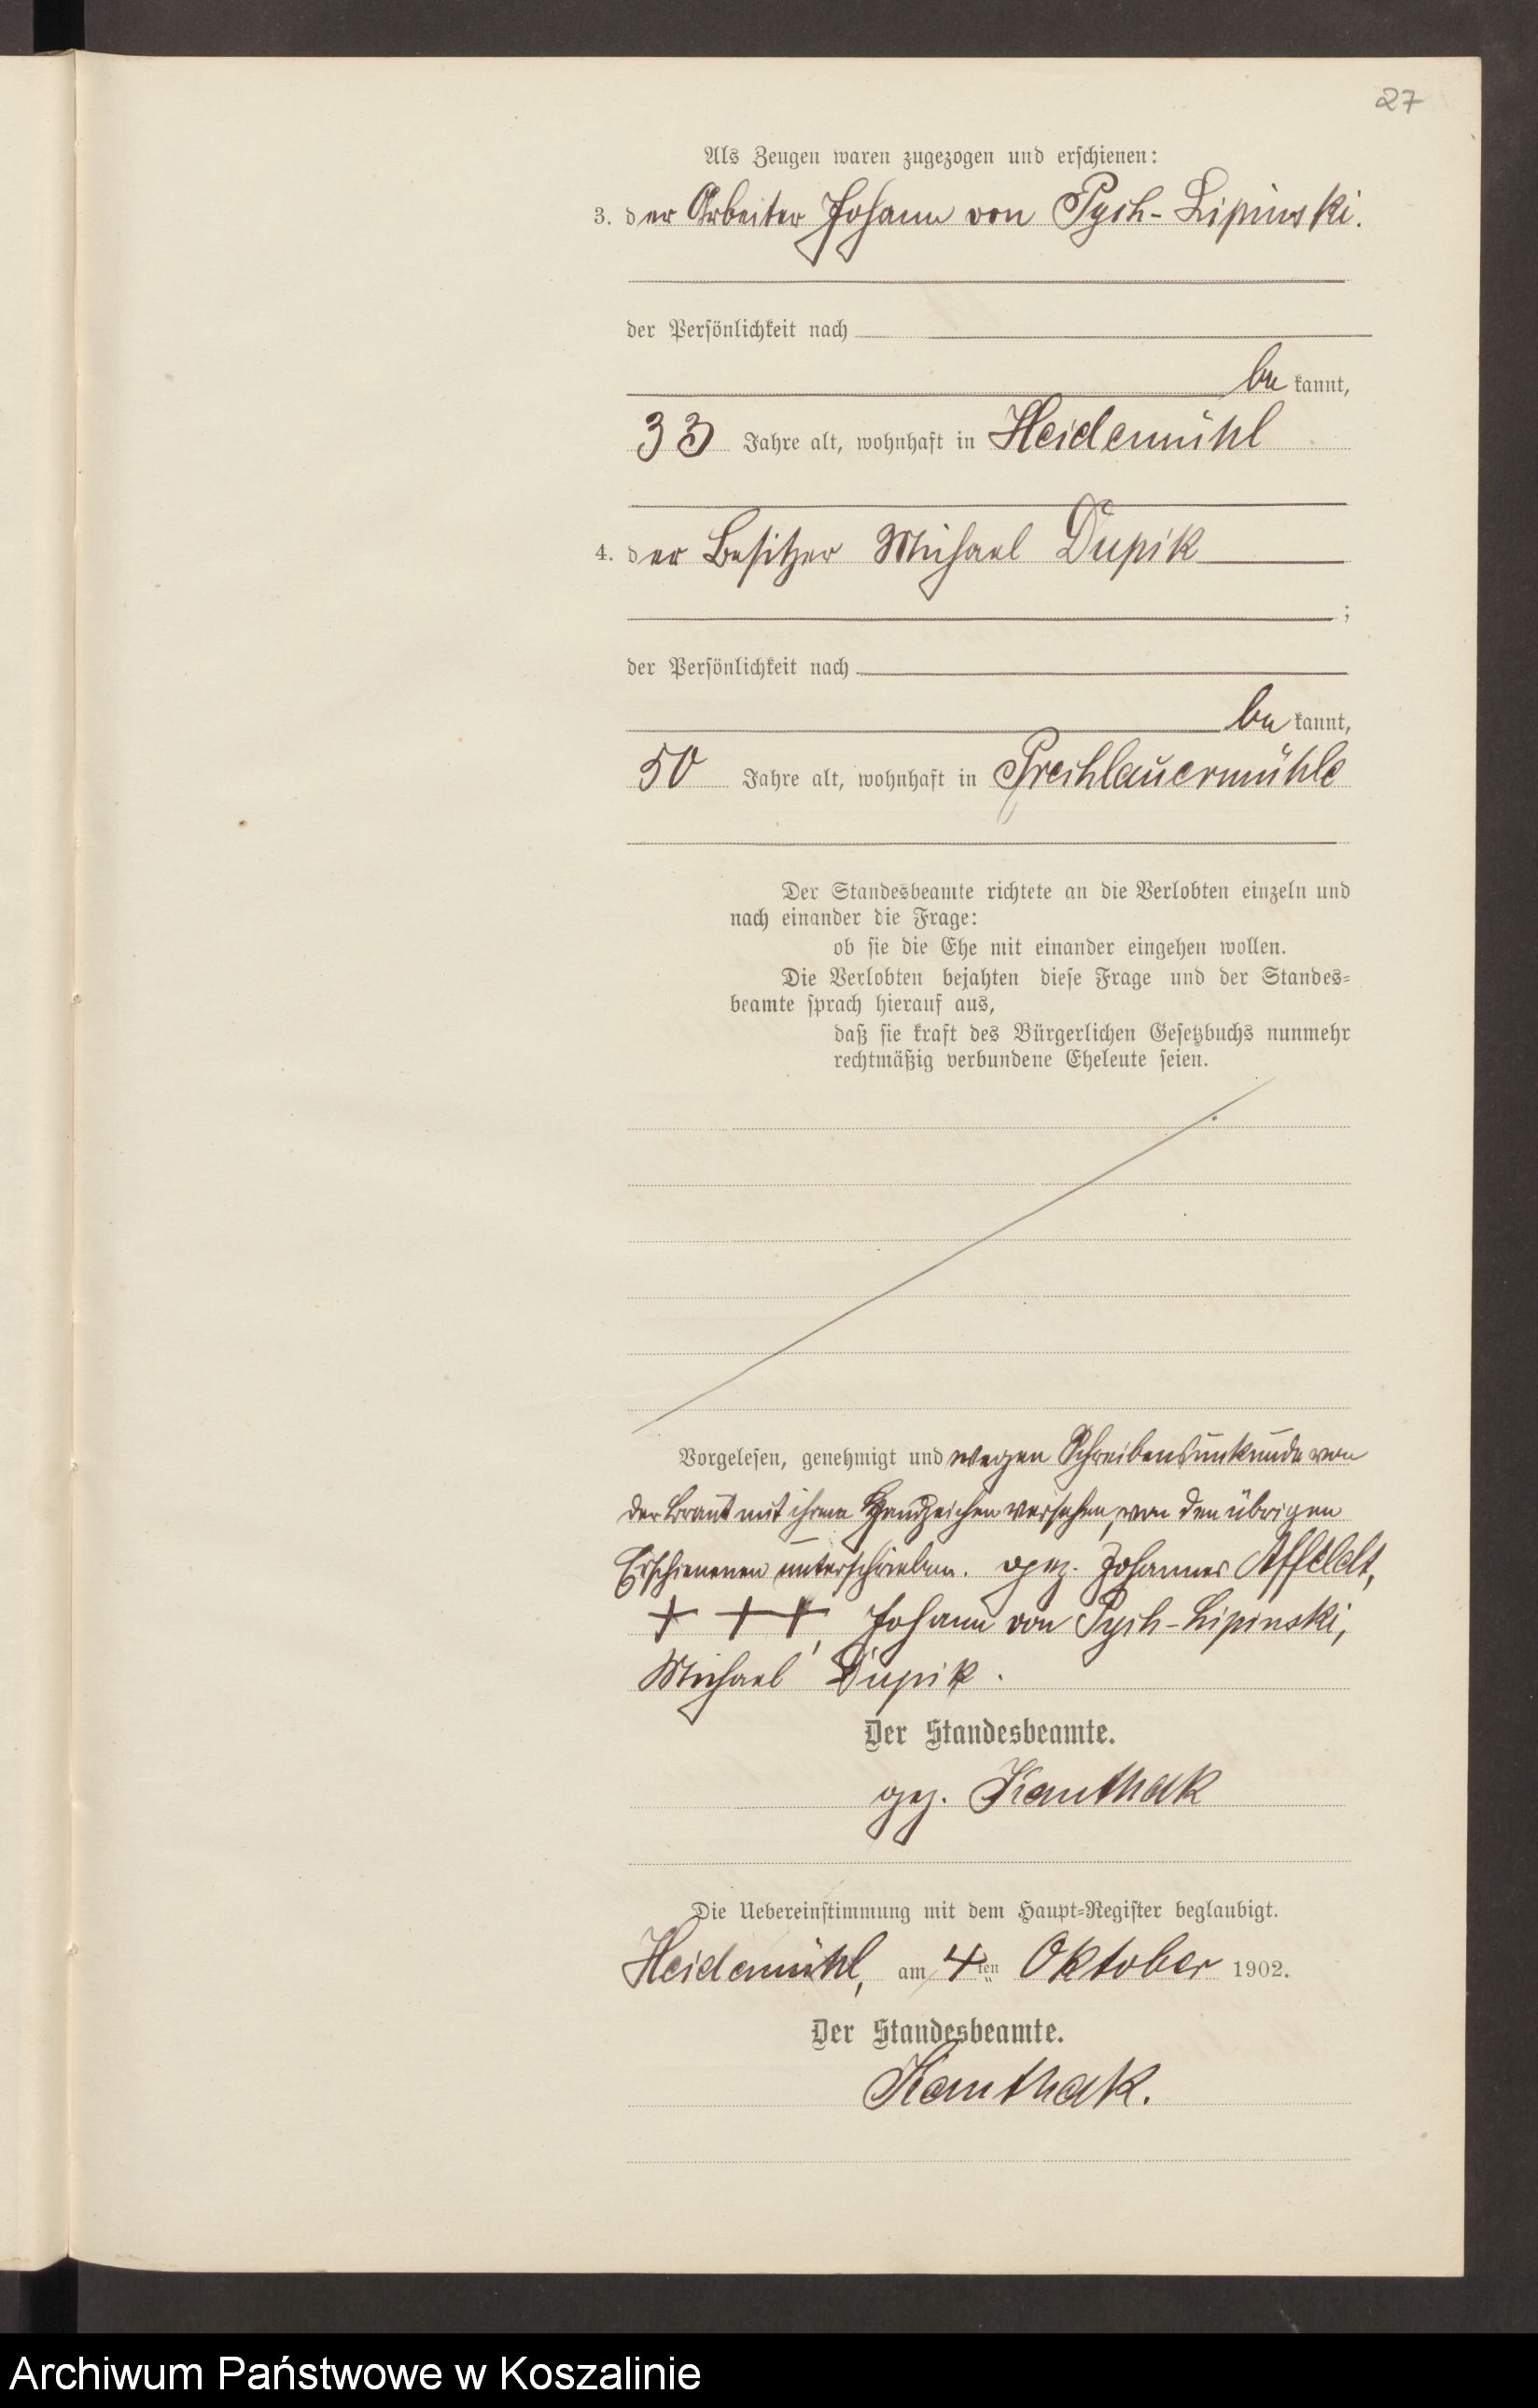 27
Als Zeugen waren zugezogen und erschienen:
3. der Arbeiter Johann von Pych-Lipinski.
der Persönlichkeit nach
be kannt,
33 Jahre alt, wohnhaft in Heidemühl
4. der Besitzer Michael Dupik
;
der Persönlichkeit nach
be kannt,
50 Jahre alt, wohnhaft in Prechlauermühle
Der Standesbeamte richtete an die Verlobten einzeln und
nach einander die Frage:
ob sie die Ehe mit einander eingehen wollen.
Die Verlobten bejahten diese Frage und der Standes-
beamte sprach hierauf aus,
daß sie kraft des Bürgerlichen Gesetzbuchs nunmehr
rechtmäßig verbundene Eheleute seien.
Vorgelesen, genehmigt und wegen Schreibensunkunde von
der Braut mit ihrem Handzeichen versehen, von den übrigen
Erschienenen unterschrieben. gez. Johannes Affeldt,
+ + +, Johann von Pych-Lipinski,
Michael Dupik.
Der Standesbeamte.
gez. Kanthak
Die Uebereinstimmung mit dem Haupt-Register beglaubigt.
Heidemühl, am 4ten Oktober 1902.
Der Standesbeamte.
Kanthak.
Archiwum Państwowe w Koszalinie